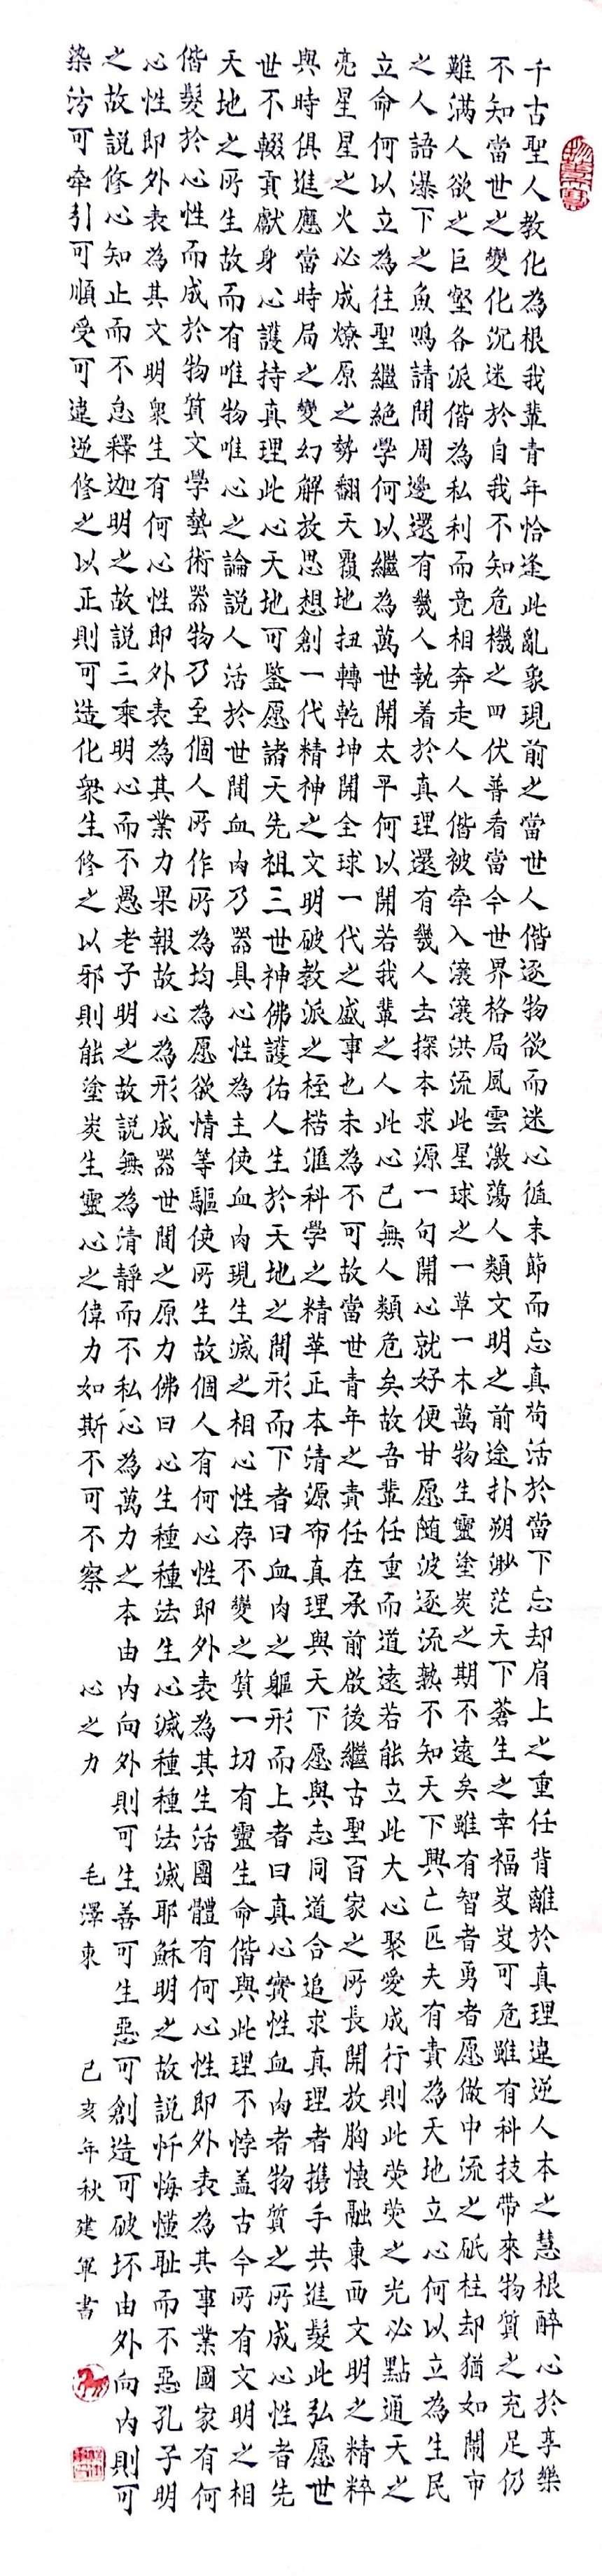 千古聖人教化為根我輩青年恰逢此亂象現前之當世人偕逐物欲而迷心循末節而忘真茍活於當下忘却肩上之重任背離於真理違逆人本之慧根醉心於享樂
不知當世之變化沉迷於自我不知危機之四伏普看當今世界格局風雲激蕩人類文明之前途扑朔渺茫天下蒼生之幸福岌岌可危雖有科技帶來物質之充足仍
難滿人欲之巨壑各派偕為私利而竞相奔走人人偕被牽入滾滾洪流此星球之一草一木萬物生靈塗炭之期不遠矣雖有智者勇者愿做中流之砥柱却猶如鬧市
之人語瀑下之魚鳴請問周邊還有幾人執着於真理還有幾人去探本求源一句開心就好便甘愿随波逐流孰不知天下興亡匹夫有責為天地立心何以立為生民
立命何以立為往聖繼絕學何以繼為萬世開太平何以開若我輩之人此心已無人類危矣故吾輩任重而道遠若能立此大心聚愛成行則此熒熒之光必點通天之
亮星星之火必成燎原之勢翻天覆地扭轉乾坤開全球一代之盛事也未為不可故當世青年之責任在承前啟後繼古聖百家之所長開放胸懷融東西文明之精粹
與時俱進應當時局之變幻解放思想創一代精神之文明破教派之桎梏滙科學之精華正本清源布真理與天下愿與志同道合追求真理者携手共進髮此弘愿世
世不輟貢獻身心護持真理此心天地可鑒愿諸天先祖三世神佛護佑人生於天地之間形而下者曰血肉之軀形而上者曰真心實性血肉者物質之所成心性者先
天地之所生故而有唯物唯心之論說人活於世間血肉乃器具心性為主使血肉現生滅之相心性存不變之質一切有靈生命偕與此理不悖蓋古今所有文明之相
偕髮於心性而成於物質文學藝術器物乃至個人所作所為均為愿欲情等驅使所生故個人有何心性即外表為其生活團體有何心性即外表為其事業國家有何
心性即外表為其文明衆生有何心性即外表為其業力果報故心為形成器世間之原力佛曰心生種種法生心滅種種法滅耶穌明之故説忏悔懂耻而不惡孔子明
之故説修心知止而不怠釋迦明之故説三乘明心而不愚老子明之故説無為清靜而不私心為萬力之本由内向外則可生善可生惡可創造可破坏由外向内則可
染污可牽引可順受可違逆修之以正則可造化衆生修之以邪則能塗炭生靈心之偉力如斯不可不察 心之力 毛澤東 己亥年秋建軍書